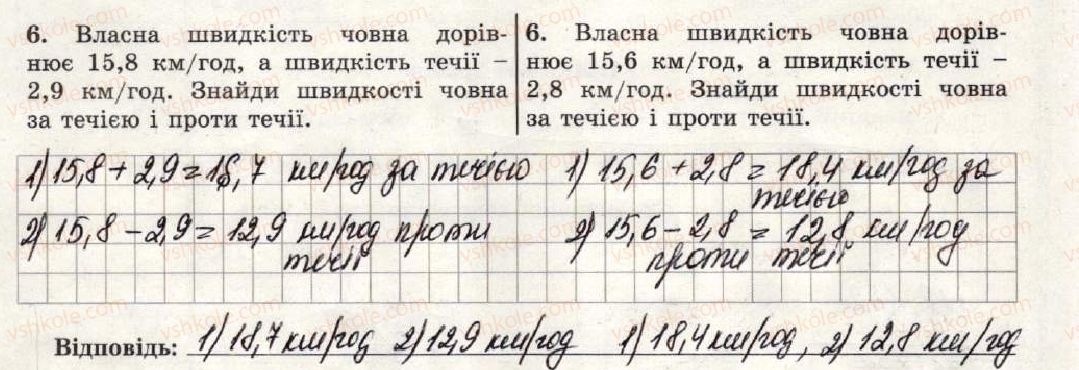 6. Власна швидкість човна дорів-
нює 15,8 км/год, а швидкість течії –
2,9 км/год. Знайди швидкості човна
за течією і проти течії.
6. Власна швидкість човна дорів-
нює 15,6 км/год, а швидкість течії –
2,8 км/год. Знайди швидкості човна
за течією і проти течії.
1) 15,8 + 2,9 = 18,7 км/год за течією
2) 15,8 – 2,9 = 12,9 км/год проти
течії
1) 15,6 + 2,8 = 18,4 км/год за
течією
2) 15,6 – 2,8 = 12,8 км/год
проти течії
Відповідь: 1) 18,7 км/год 2) 12,9 км/год 1) 18,4 км/год, 2) 12,8 км/год